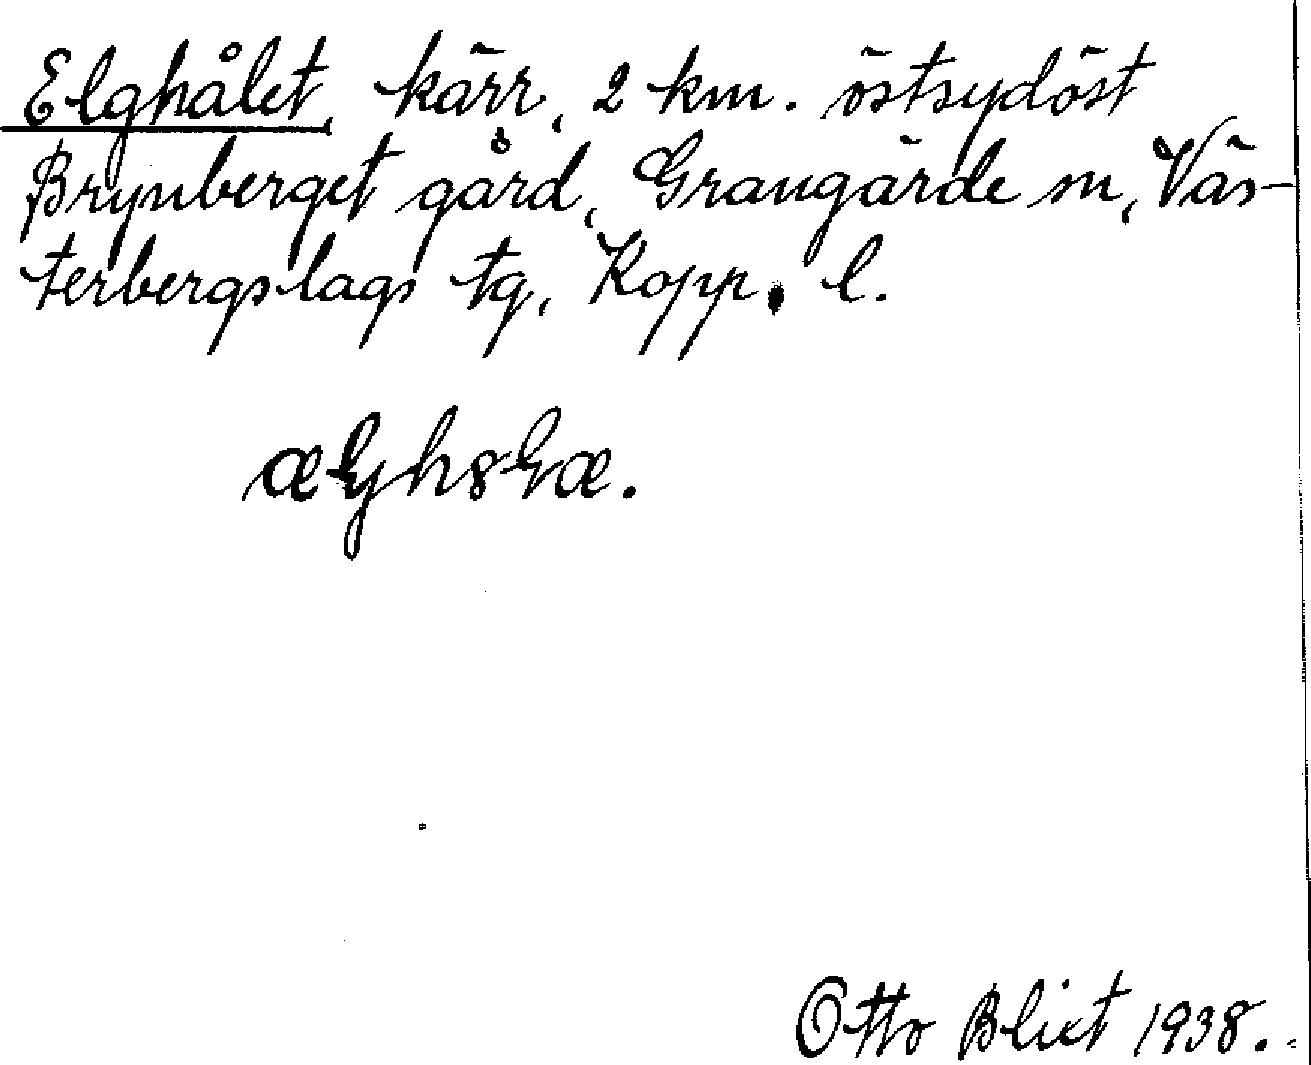 Elghålet, kärr, 2 km. östsydöst
Brynberget gård, Grangärde sn, Väs-
terbergslags tg, Kopp. l.
Otto Blixt 1938.